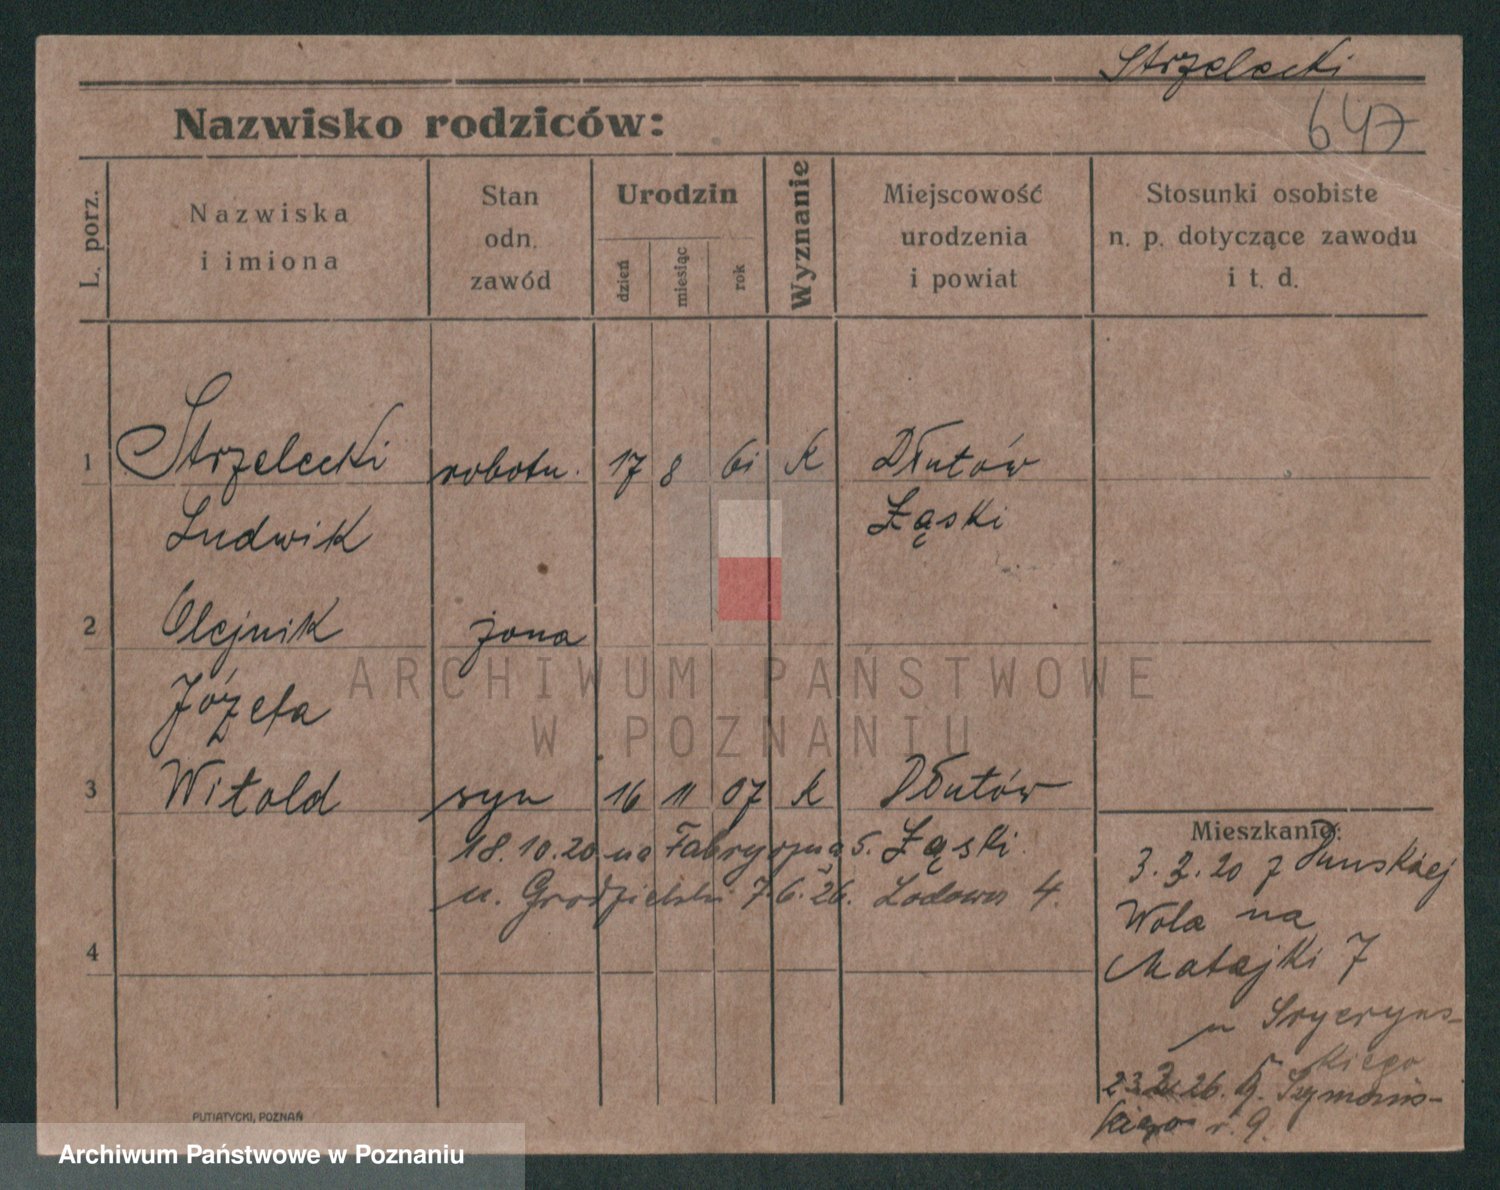 Strzelecki
Nazwisko rodziców:
647
L. porz.
Nazwiska
i imiona
Stan
odn.
zawód
Urodzin
dzień
miesiąc
rok
Wyznanie
Miejscowość
urodzenia
i powiat
Stosunki osobiste
n. p. dotyczące zawodu
i t. d.
1 Strzelecki robotn. 17 8 61 K Dłutów
Ludwik Łąski
2 Olejnik żona
Józefa
3 Witold syn 16 11 07 K Dłutów
18.10.20 na Fabryczna 5. Łąski
u. Grodzielski 7.6.26. Łodowa 4.
4
Mieszkanie:
3.3.20 z Duńskiej
Wola na
Matejki 7
u
kiego
26. Szymańs-
kiego r. 9.
PUTIATYCKI, POZNAŃ
ARCHIWUM PAŃSTWOWE
W POZNANIU
Archiwum Państwowe w Poznaniu